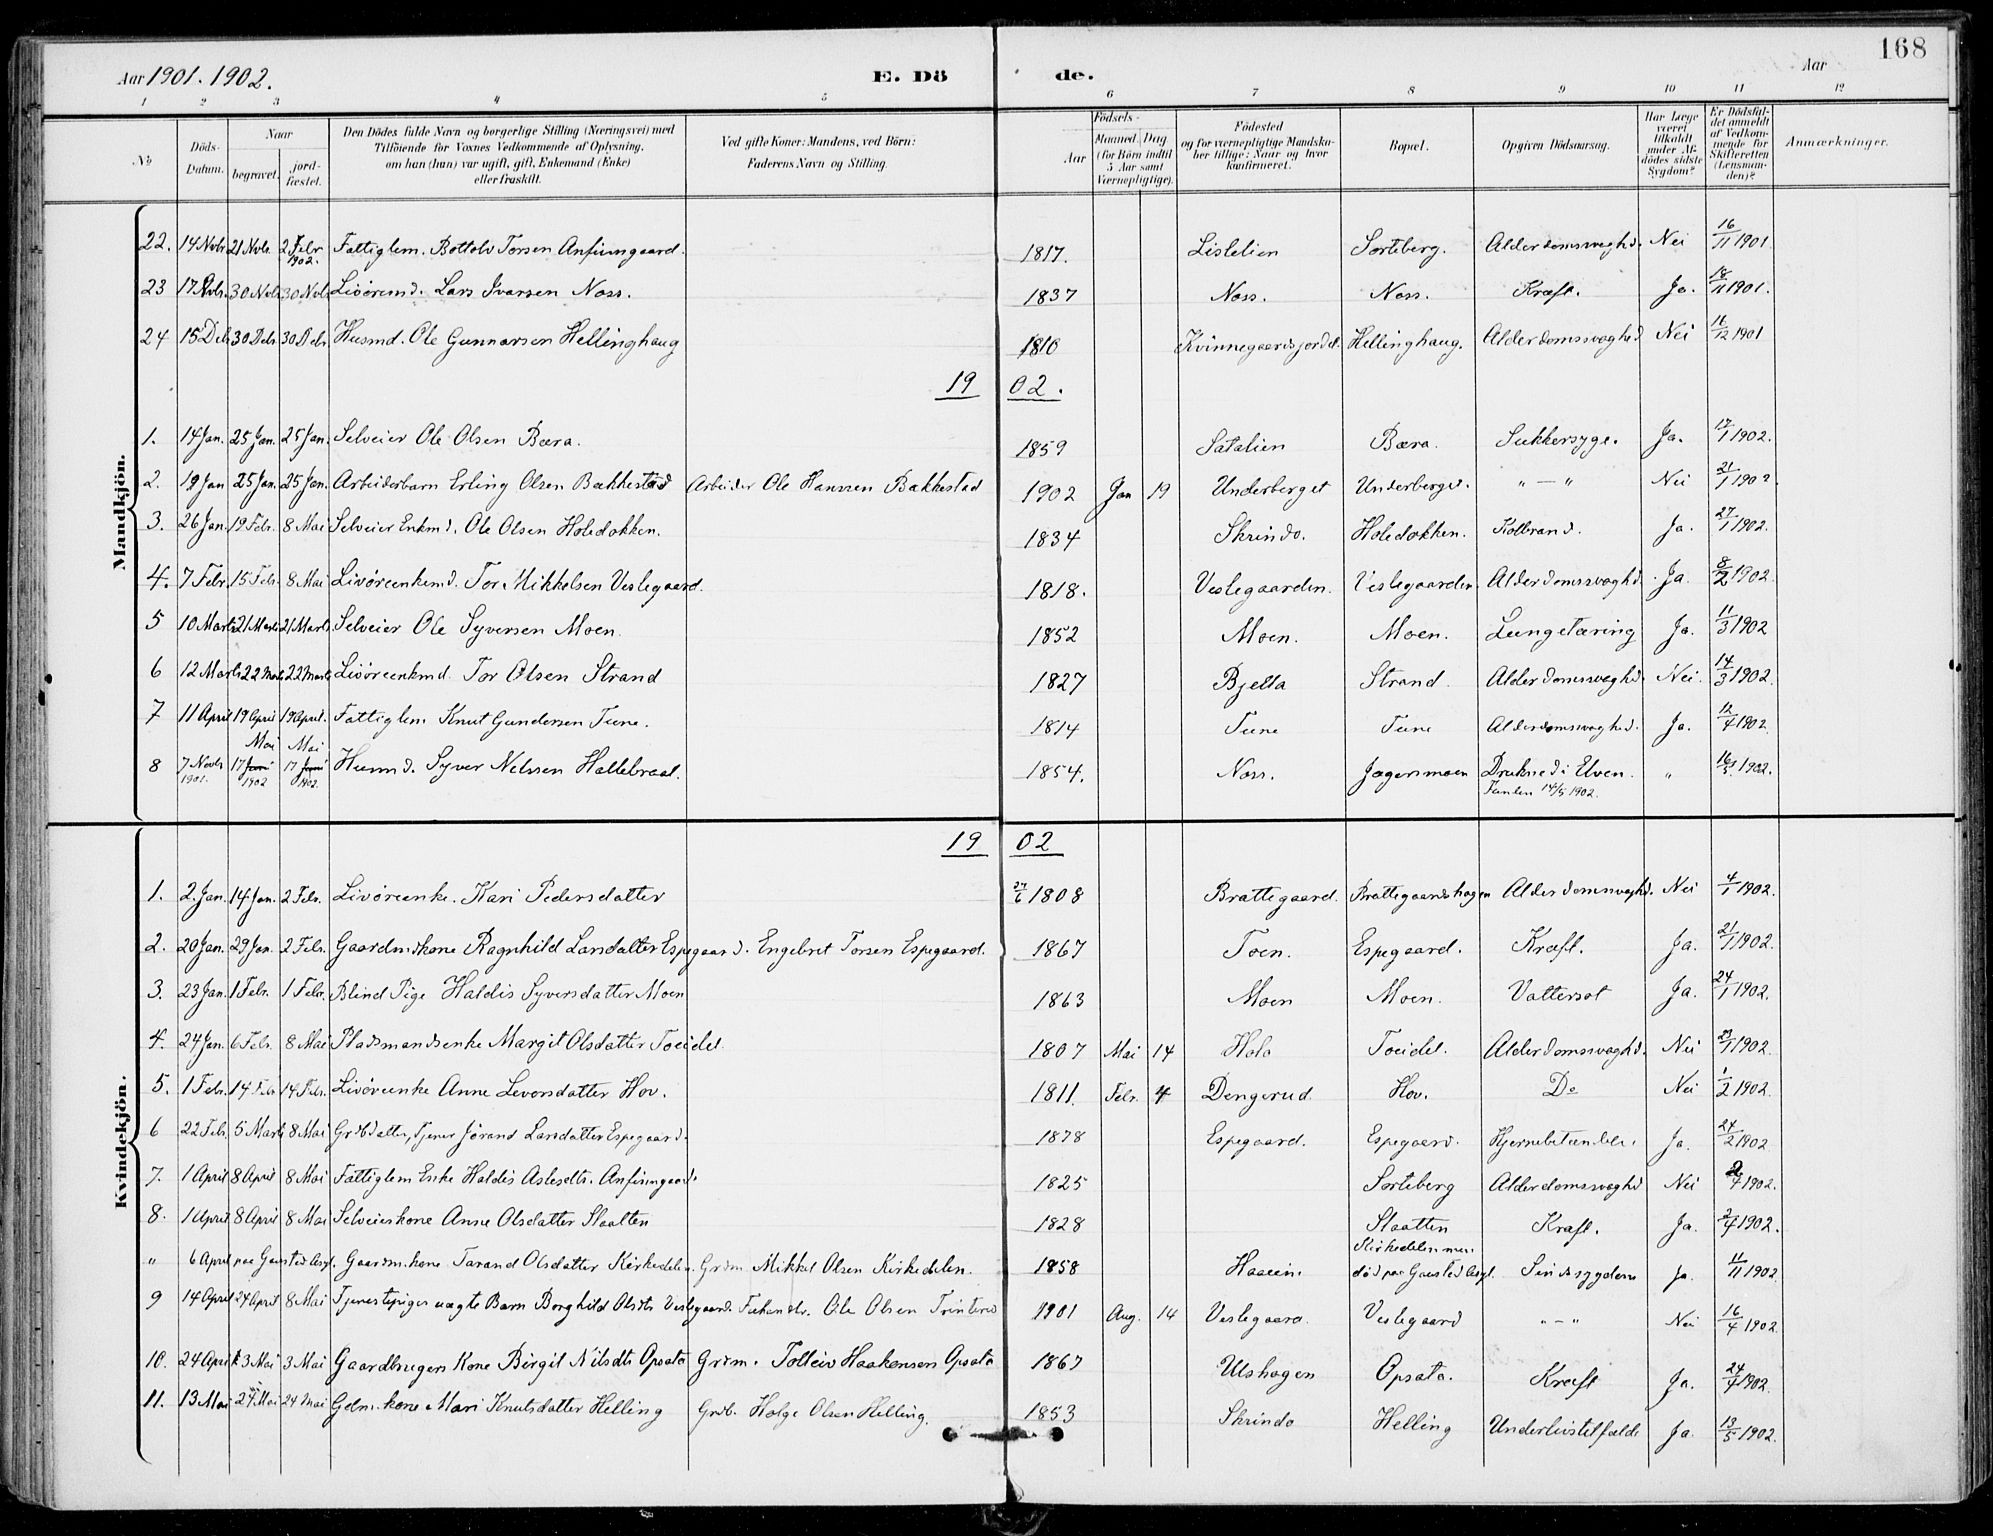 168
Aar 1901. 1902. E. Dö de. Aar
1 2 3 4 5 6 7 8 9 10 11 12
No
Döds-Datum.
Naar
begravet.
jordfæstet.
Den Dödes fulde Navn og borgerlige Stilling (Næringsvei) med
Tilföiende for Voxnes Vedkommende af Oplysning,
om han (hun) var ugift, gift, Enkemand (Enke)
eller fraskilt.
Ved gifte Koner: Mandens, ved Börn:
Faderens Navn og Stilling.
Födsels-
Aar
Maaned. Dag
(for Börn indtil
5 Aar samt
Værnepligtige).
Födested
og for værnepligtige Mandskaber tillige: Naar og hvor
konfirmeret.
Bopæl.
Opgiven Dödsaarsag.
Har Læge
været
tilkaldt
under Afdödes sidste
Sygdom?
Er Dödsfaldet anmeldt
af Vedkommende for
Skifteretten
(Lensmanden)?
Anmærkninger.
Mandkjön.
22. 14 Novbr. 21 Novb. 2 Febr. 1902. Fattiglem. Bottolv Torsen Anfinngaard. 1817. Listelien Sorteberg. Alderdomssvaghd. Nei 16/11 1901.
23 17 Novbr. 30 Novb. 30 Novb. Livøremd. Lars Ivarsen Noss. 1837 Noss. Noss. Kræft. Ja. 18/11 1901.
24 15 Debr. 30 Debr. 30 Debr. Husmd. Ole Gunnarsen Hellinghaug 1810 Kvinnegaardsjordet. Hellinghaug. Alderdomssvaghed Nei 16/12 1901
19 02.
1. 14 Jan. 25 Jan. 25 Jan. Selveier Ole Olsen Bæra. 1859 Satalien Bæra. Sukkersyge. Ja. 17/1 1902.
2. 19 Jan 25 Jan. 25 Jan. Arbeiderbarn Erling Olsen Bakkestad Arbeider Ole Hanssen Bakkestad 1902 Jan 19 Underberget Underberget. " — " Nei 21/1 1902.
3. 26 Jan. 19 Febr. 8 Mai Selveier Enkmd. Ole Olsen Holedokken. 1834 Skrindo. Holedokken. Koldbrand. Ja. 27/1 1902.
4. 7 Febr. 15 Febr. 8 Mai Livøreenkemd. Tor Mikkelsen Veslegaard. 1818. Veslegaarden. Veslegaarden. Alderdomssvaghd. Ja. 8/2 1902.
5 10 Marts 21 Marts 21 Marts. Selveier Ole Syversen Moen. 1852 Moen. Moen. Lungetæring Ja. 11/3 1902
6 12 Marts 22 Marts 22 Marts Livøreenkmd. Tor Olsen Strand 1827 Bjella Strand. Alderdomssvaghd. Nei. 14/3 1902.
7 11 April 19 April 19 April. Fattiglem Knut Gundersen Tune. 1814 Tune Tune Alderdomssvaghed. Ja. 12/4 1902.
8 7 Novbr 1901. 17 Juni Mai 1902 17 Juni Mai 1902. Husmd. Syver Nelssen Hallebraat. 1854. Noss. Jægersmoen Druknede i Elven. Funden 14/5 1902. " 16/5 1902.
Kvindekjön.
19 02
1. 2. Jan. 14 Jan. 2 Febr. Livøreenke. Kari Pedersdatter 27/6 1808 Brattegaard. Brattegaardshagen Alderdomssvaghd. Nei 4/1 1902.
2. 20 Jan. 29 Jan. 2 Febr. Gaardmdskone Ragnhild Larsdatter Espegaard. Engebret Torsen Espegaard. 1867 Toen. Espegaard. Kræft. Ja. 21/1 1902.
3. 23 Jan. 1 Febr. 1 Febr. Blind Pige Haldis Syversdatter Moen 1863 Moen Moen. Vattersot Ja. 24/1 1902.
4. 24 Jan. 6 Febr. 8 Mai Pladsmandsenke Margit Olsdatter Toeidet. 1807 Mai 14 Holo Toeidet. Alderdomssvaghd. Nei 27/1 1902.
5. 1 Febr. 14 Febr 14 Febr. Livøreenke Anne Levorsdatter Hov. 1811. Febr. 4 Dengerud. Hov. Do Nei 1/2 1902.
6 22 Febr. 5 Marts 8 Mai Grdbdatter, Tjener Jørand Larsdatter Espegaard. 1878 Espegaard. Espegaard. Hjernebetændelse. Ja. 24/2 1902
7. 1 April 8 April 8 Mai Fattiglem Enke Haldis Aslesdtr. Anfinngaard. 1825 Sorteberg Alderdomssvaghd Nei 2/4 1902.
8. 1 April 8 April 8 Mai Selveierskone Anne Olsdatter Slaatten 1828 Slaatten Kræft. Ja. 2/4 1902.
" 6 April paa Gaustad Asyl. Gaardm.kone Tarand Olsdatter Kirkedelen Grdm. Mikkel Olsen Kirkedelen. 1858 Haaein. Kirkedelen men død paa Gaustad Asyl. Sindssygdom Ja. 11/11 1902.
9 14 April 24 April 8 Mai Tjenestepiges uægte Barn Borghild Olsdtr Veslegaard. Ole Olsen 1901 Aug. 14 Veslegaard. Veslegaard " — " Nei 16/4 1902.
10. 24 April 3 Mai 3 Mai Gaardbrugers Kone Birgit Nilsdtr Opsata Grdm. Tolleiv Haakensen Opsata 1867 Ulshagen Opsata. Kræft Ja. 24/4 1902.
11. 13 Mai 24 Mai 24 Mai Gdm.kone Mari Knutsdatter Helling Grdb. Holge Olsen Helling. 1853 Skrindo Helling Underlivstilfælde Ja. 13/5 1902.